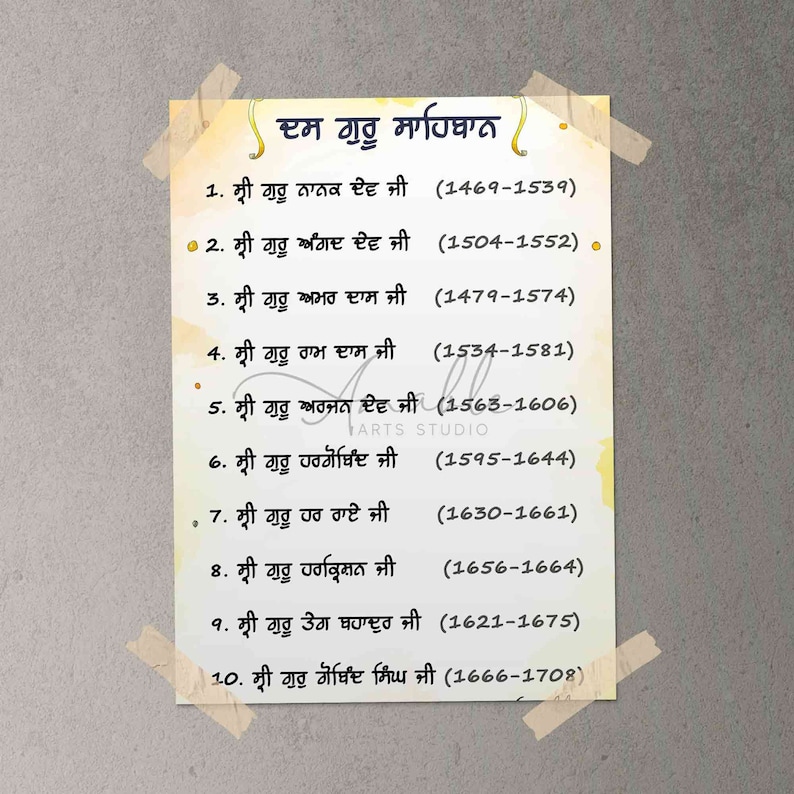 ਦਸ ਗੁਰੂ ਸਾਹਿਬਾਨ
1. ਸ੍ਰੀ ਗੁਰੂ ਨਾਨਕ ਦੇਵ ਜੀ (1469-1539)
2. ਸ੍ਰੀ ਗੁਰੂ ਅੰਗਦ ਦੇਵ ਜੀ (1504-1552)
3. ਸ੍ਰੀ ਗੁਰੂ ਅਮਰ ਦਾਸ ਜੀ (1479-1574)
4. ਸ੍ਰੀ ਗੁਰੂ ਰਾਮ ਦਾਸ ਜੀ (1534-1581)
5. ਸ੍ਰੀ ਗੁਰੂ ਅਰਜਨ ਦੇਵ ਜੀ (1563-1606)
ARTS STUDIO
6. ਸ੍ਰੀ ਗੁਰੂ ਹਰਗੋਬਿੰਦ ਜੀ (1595-1644)
7. ਸ੍ਰੀ ਗੁਰੂ ਹਰ ਰਾਏ ਜੀ (1630-1661)
8. ਸ੍ਰੀ ਗੁਰੂ ਹਰਕ੍ਰਿਸ਼ਨ ਜੀ (1656-1664)
9. ਸ੍ਰੀ ਗੁਰੂ ਤੇਗ ਬਹਾਦੁਰ ਜੀ (1621-1675)
10. ਸ੍ਰੀ ਗੁਰੂ ਗੋਬਿੰਦ ਸਿੰਘ ਜੀ (1666-1708)